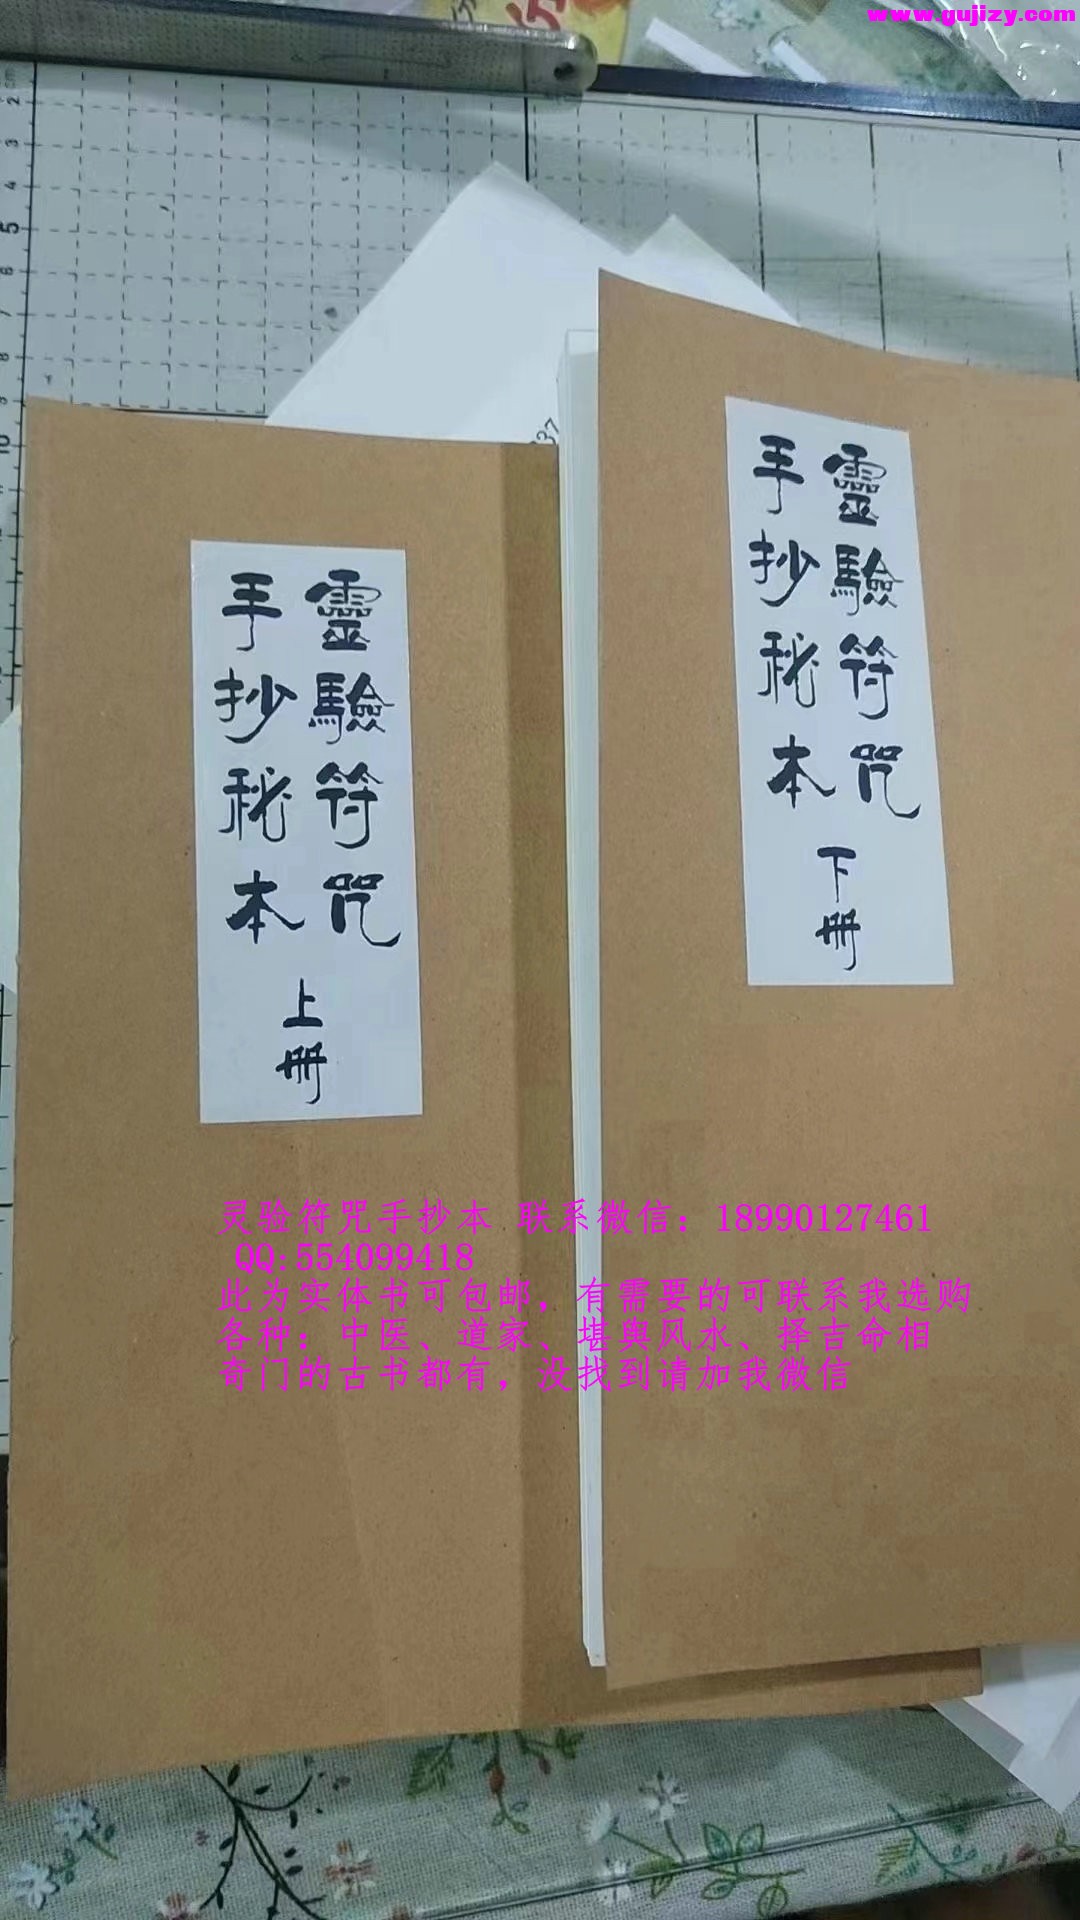 www.gujizy.com
靈驗符咒
手抄秘本
上册
靈驗符咒
手抄秘本
下册
灵验符咒手抄本 联系微信：18990127461
QQ:554099418
此为实体书可包邮，有需要的可联系我选购
各种：中医、道家、堪舆风水、择吉命相
奇门的古书都有，没找到请加我微信
2
3
4
5
6
7
8
10
37